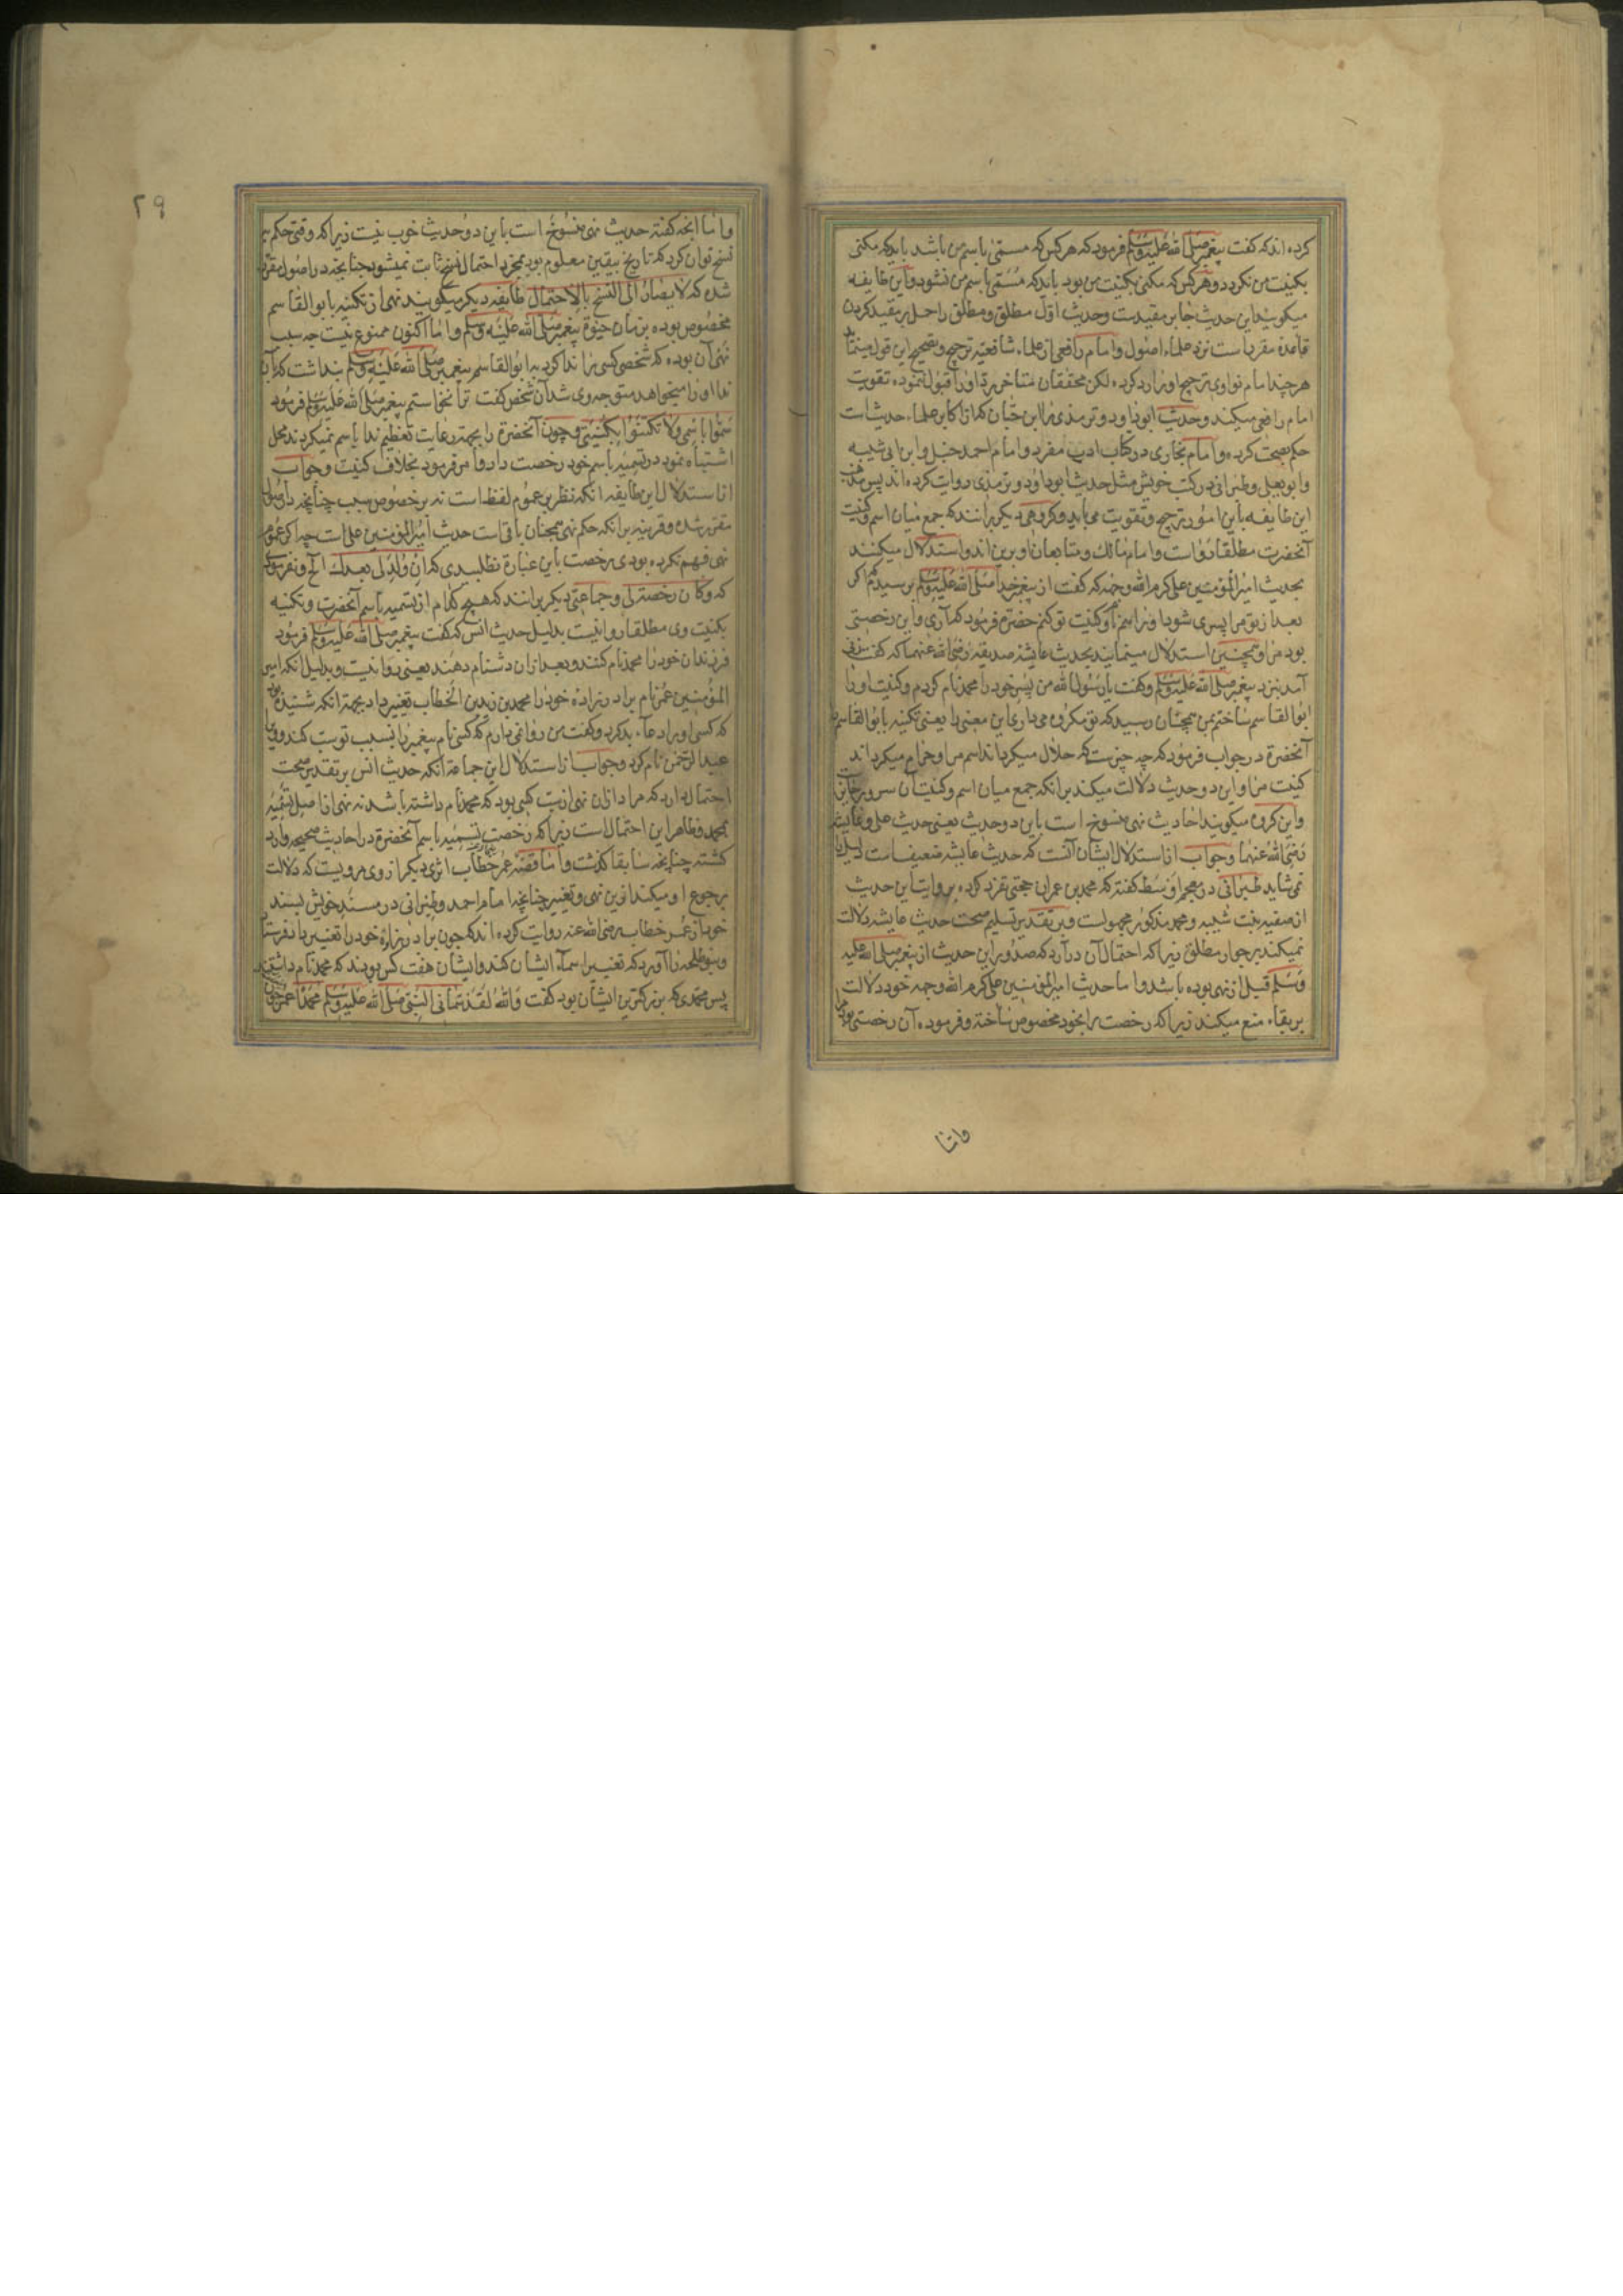 کرده‌اند که گفت پیغمبر صلی الله علیه وسلم فرمود که هر کس که مسمّی باسم من باشد باید که مکنی
بکنیت من نکردد و هر کس که مکنی بکنیت من بود باید که مسمّی باسم من نشود و این طایفه
میکویند این حدیث جابر مقیدست و حدیث اوّل مطلق و مطلق را حمل بر مقید کردن
قاعدهٔ مقررست نزد علماء اصول و امام رافعی از علماء شافعیّه ترجیح و تصحیح این قول مینماید
هر چند امام نواوی ترجیح او را رد کرده لکن محققان متاخر رد او را قبول ننموده تقویت
امام رافعی میکنند و حدیث ابوداود و ترمذی را ابن حبان که از اکابر علماء حدیث است
حکم بصحت کرده و امام بخاری در کتاب ادب مفرد و امام احمد حنبل و ابن ابی شیبه
و ابو یعلی و طبرانی در کتب خویش مثل حدیث ابوداود و ترمذی روایت کرده‌اند پس مذهب
این طایفه باین امور ترجیح و تقویت می‌یابد و کروهی دیکر برانند که جمع میان اسم و کنیت
آنحضرت مطلقا رواست و امام مالک و متابعان او برین اند و استدلال میکنند
بحدیث امیر المؤمنین علی کرم الله وجهه که گفت از پیغمبر خدا صلی الله علیه وسلم پرسیدم که اکر
بعد از تو مرا پسری شود او را باسم تو و کنیت تو کنم حضرة فرمود که آری و این رخصتی
بود مرا و همچنین استدلال مینمایند بحدیث عایشه صدیقه رضی الله عنهما که گفت زنی
آمد بنزد پیغمبر صلی الله علیه وسلم و گفت یا رسول الله من پسر خود را محمد نام کردم و کنیت او را
ابو القاسم ساختم بمن چنان رسید که تو مکروه می‌داری این معنی را یعنی تکنیه بابو القاسم
آنحضرة در جواب فرمود که چه چیزست که حلال میکرداند اسم مرا و حرام میکرداند
کنیت مرا و این دو حدیث دلالت میکند برانکه جمع میان اسم و کنیت آن سرور جایز
و این کروه میکویند احادیث نهی منسوخ است باین دو حدیث یعنی حدیث علی و عایشه
رضی الله عنهما و جواب از استدلال ایشان آنست که حدیث عایشه ضعیف است دلیل را
نمی‌شاید طبرانی در معجم اوسط گفته که محمد بن عمران حجبی تفرد کرده بروایت این حدیث
از صفیه بنت شیبه و محمد مذکور مجهولست و بر تقدیر تسلیم صحت حدیث عایشه دلالت
نمیکند بر جواز مطلق زیرا که احتمال آن دارد که صدور این حدیث از پیغمبر صلی الله علیه
وسلم قبل از نهی بوده باشد و اما حدیث امیر المؤمنین علی کرم الله وجهه خود دلالت
بر بقاء منع میکند زیرا که رخصت را بخود مخصوص ساخته و فرموده آن رخصتی بود مرا
واما
۲۹
و اما آنچه گفته حدیث نهی منسوخ است باین دو حدیث خوب نیست زیرا که وقتی حکم به
نسخ توان کرد که تاریخ بیقین معلوم بود بمجرد احتمال نسخ ثابت نمیشود چنانچه در اصول مقرر
شده که لا یصار الی النسخ بالاحتمال طایفه دیکر میکویند نهی از تکنیه بابو القاسم
مخصوص بوده بزمان حیوة پیغمبر صلی الله علیه وسلم و اما اکنون ممنوع نیست چه سبب
نهی آن بوده که شخصی کسی را ندا کرد به ابو القاسم پیغمبر صلی الله علیه وسلم پنداشت که آن
ندا او را میخواهد متوجه وی شد آن شخص گفت ترا نخواستم پیغمبر صلی الله علیه وسلم فرمود
سموا باسمی ولا تکتنوا بکنیتی و چون آنحضرة را بجهت رعایت تعظیم ندا باسم نمیکردند محل
اشتباه نبود در تسمیه باسم خود رخصت داد و امر فرمود بخلاف کنیت و جواب
از استدلال این طایفه آنکه نظر بر عموم لفظ است نه بر خصوص سبب چنانچه در اصول
مقرر شده و قرینه برانکه حکم نهی همچنان باقی است حدیث امیر المؤمنین علی است چه اکر عموم
نهی فهم نکرده بودی رخصت باین عبارة نطلبیدی که ان ولد لی بعدک الخ و نفرمودی
که وکان رخصة لی و جماعتی دیکر برانند که هیچ کدام از تسمیه باسم آنحضرت و تکنیه
بکنیت وی مطلقا روا نیست بدلیل حدیث انس که گفت پیغمبر صلی الله علیه وسلم فرمود
فرزندان خود را محمد نام کنند و بعد ازان دشنام دهند یعنی روا نیست و بدلیل آنکه امیر
المؤمنین عمر نام برادرزادهٔ خود را محمد بن زید بن الخطاب تغییر داد بجهة آنکه شنیده بود
که کسی او را دعاء بد کرد و گفت من روا نمی‌دارم که کسی نام پیغمبر را بسبب تو سب کند و ویرا
عبد الرحمن نام کرد و جواب از استدلال این جماعة آنکه حدیث انس بر تقدیر صحت
احتمال دارد که مراد ازان نهی از سب کسی بود که محمد نام داشته باشد نه نهی از اصل تسمیه
بمحمد و ظاهر این احتمال است زیرا که رخصت تسمیه باسم آنحضرة در احادیث صحیحه وارد
کشته چنانچه سابقا کذشت و اما قصهٔ عمر خطاب اثری دیکر از وی مرویست که دلالت
بر رجوع او میکند ازین نهی و تغییر چنانچه امام احمد و طبرانی در مسند خویش بسند
خود از عمر خطاب رضی الله عنه روایت کرده‌اند که چون برادرزادهٔ خود را تغییر داد فرستاد
و بنو طلحه را آورد که تغییر اسماء ایشان کند و ایشان هفت کس بودند که محمد نام داشتند
پس محمدی که بزرکترین ایشان بود گفت والله لقد سمانی النبی صلی الله علیه وسلم محمدا عمر چون